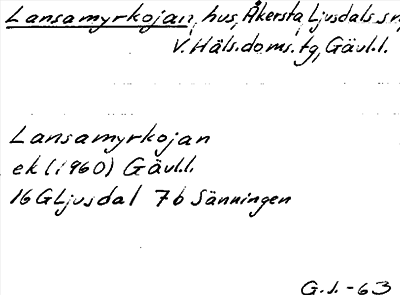 Lansamyrkojan, hus, Åkersta, Ljusdals sn,
V. Häls. doms. tg, Gävl. l.
Lansamyrkojan
ek (1960) Gävl. l.
16G Ljusdal 7b Sänningen
G. J. -63